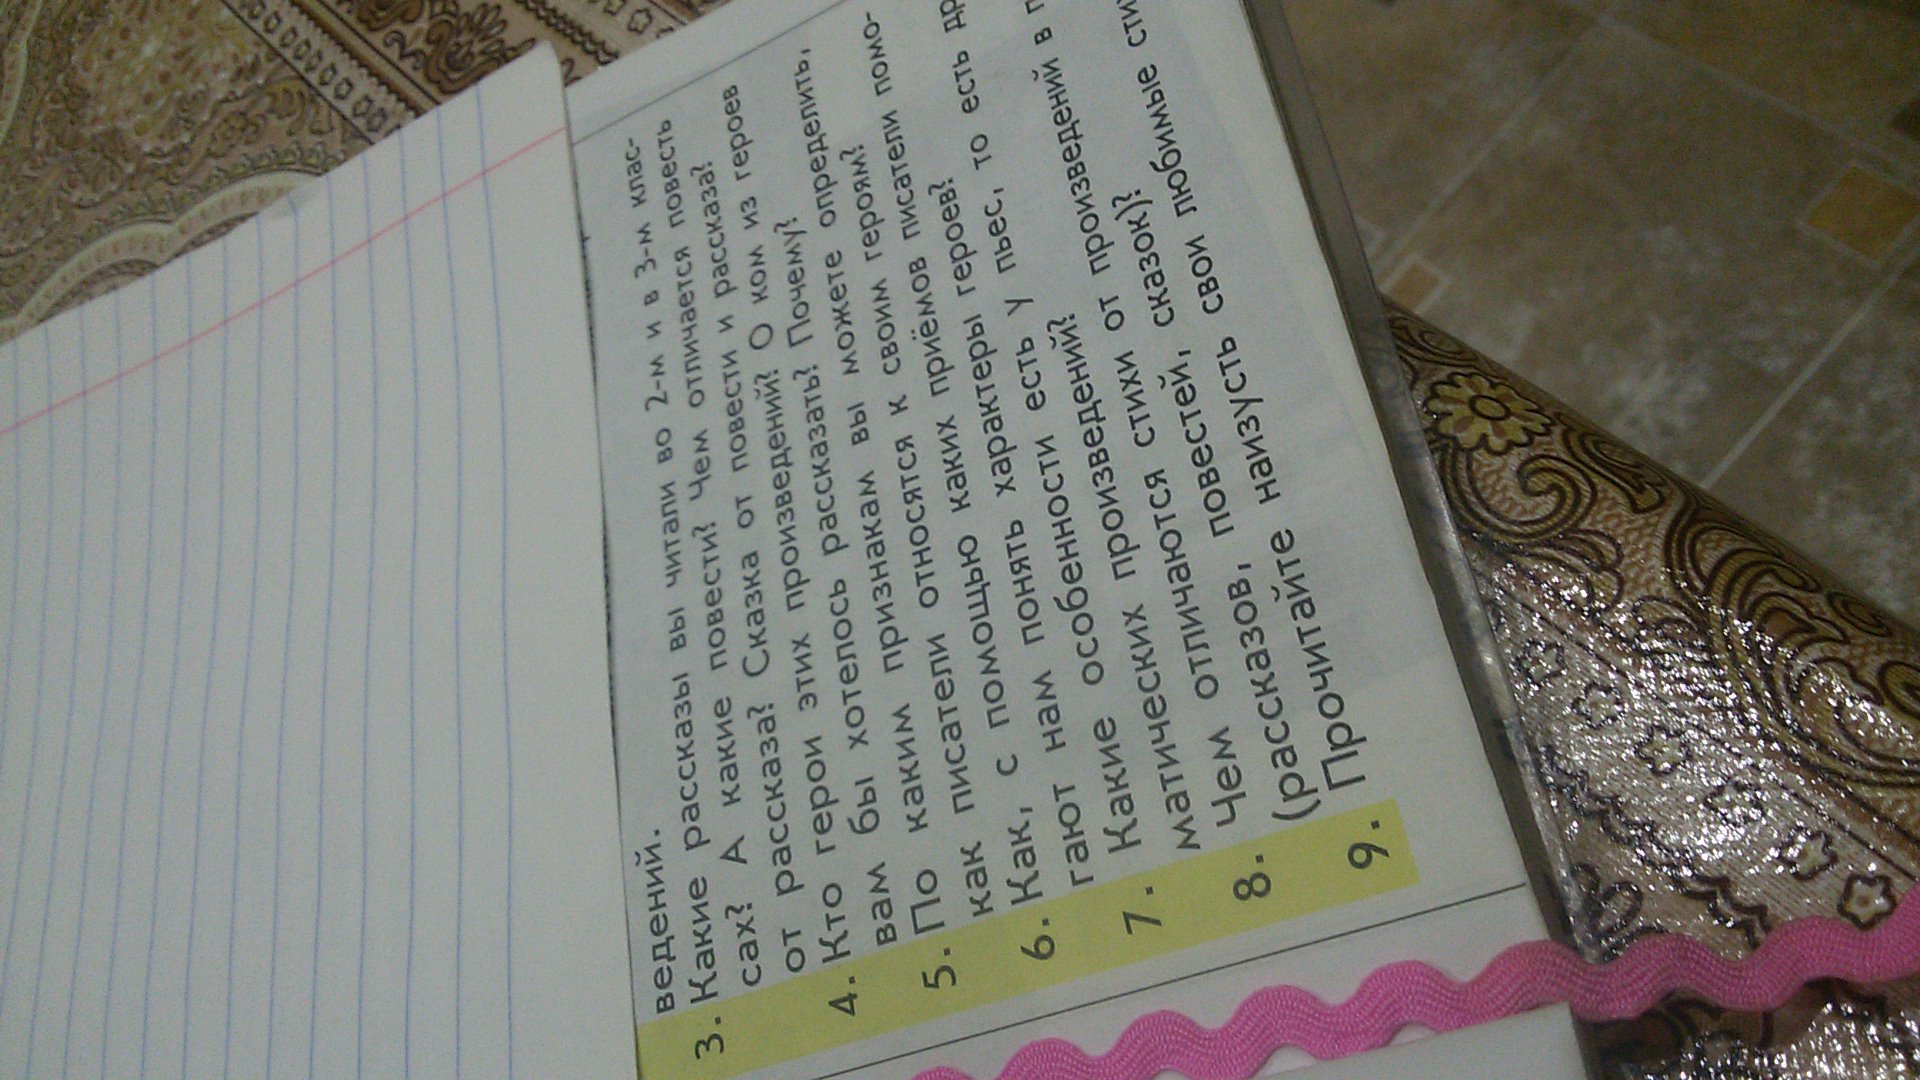 ведений.
3. Какие рассказы вы читали во 2-м и в 3-м клас-
сах? А какие повести? Чем отличается повесть
от рассказа? Сказка от повести и рассказа?
4. Кто герои этих произведений? О ком из героев
вам бы хотелось рассказать? Почему?
5. По каким признакам вы можете определить,
как писатели относятся к своим героям?
6. Как, с помощью каких приёмов писатели помо-
гают нам понять характеры героев?
7. Какие особенности есть у пьес, то есть
матических произведений?
8. Чем отличаются стихи от произведений в
(рассказов, повестей, сказок)?
9. Прочитайте наизусть свои любимые